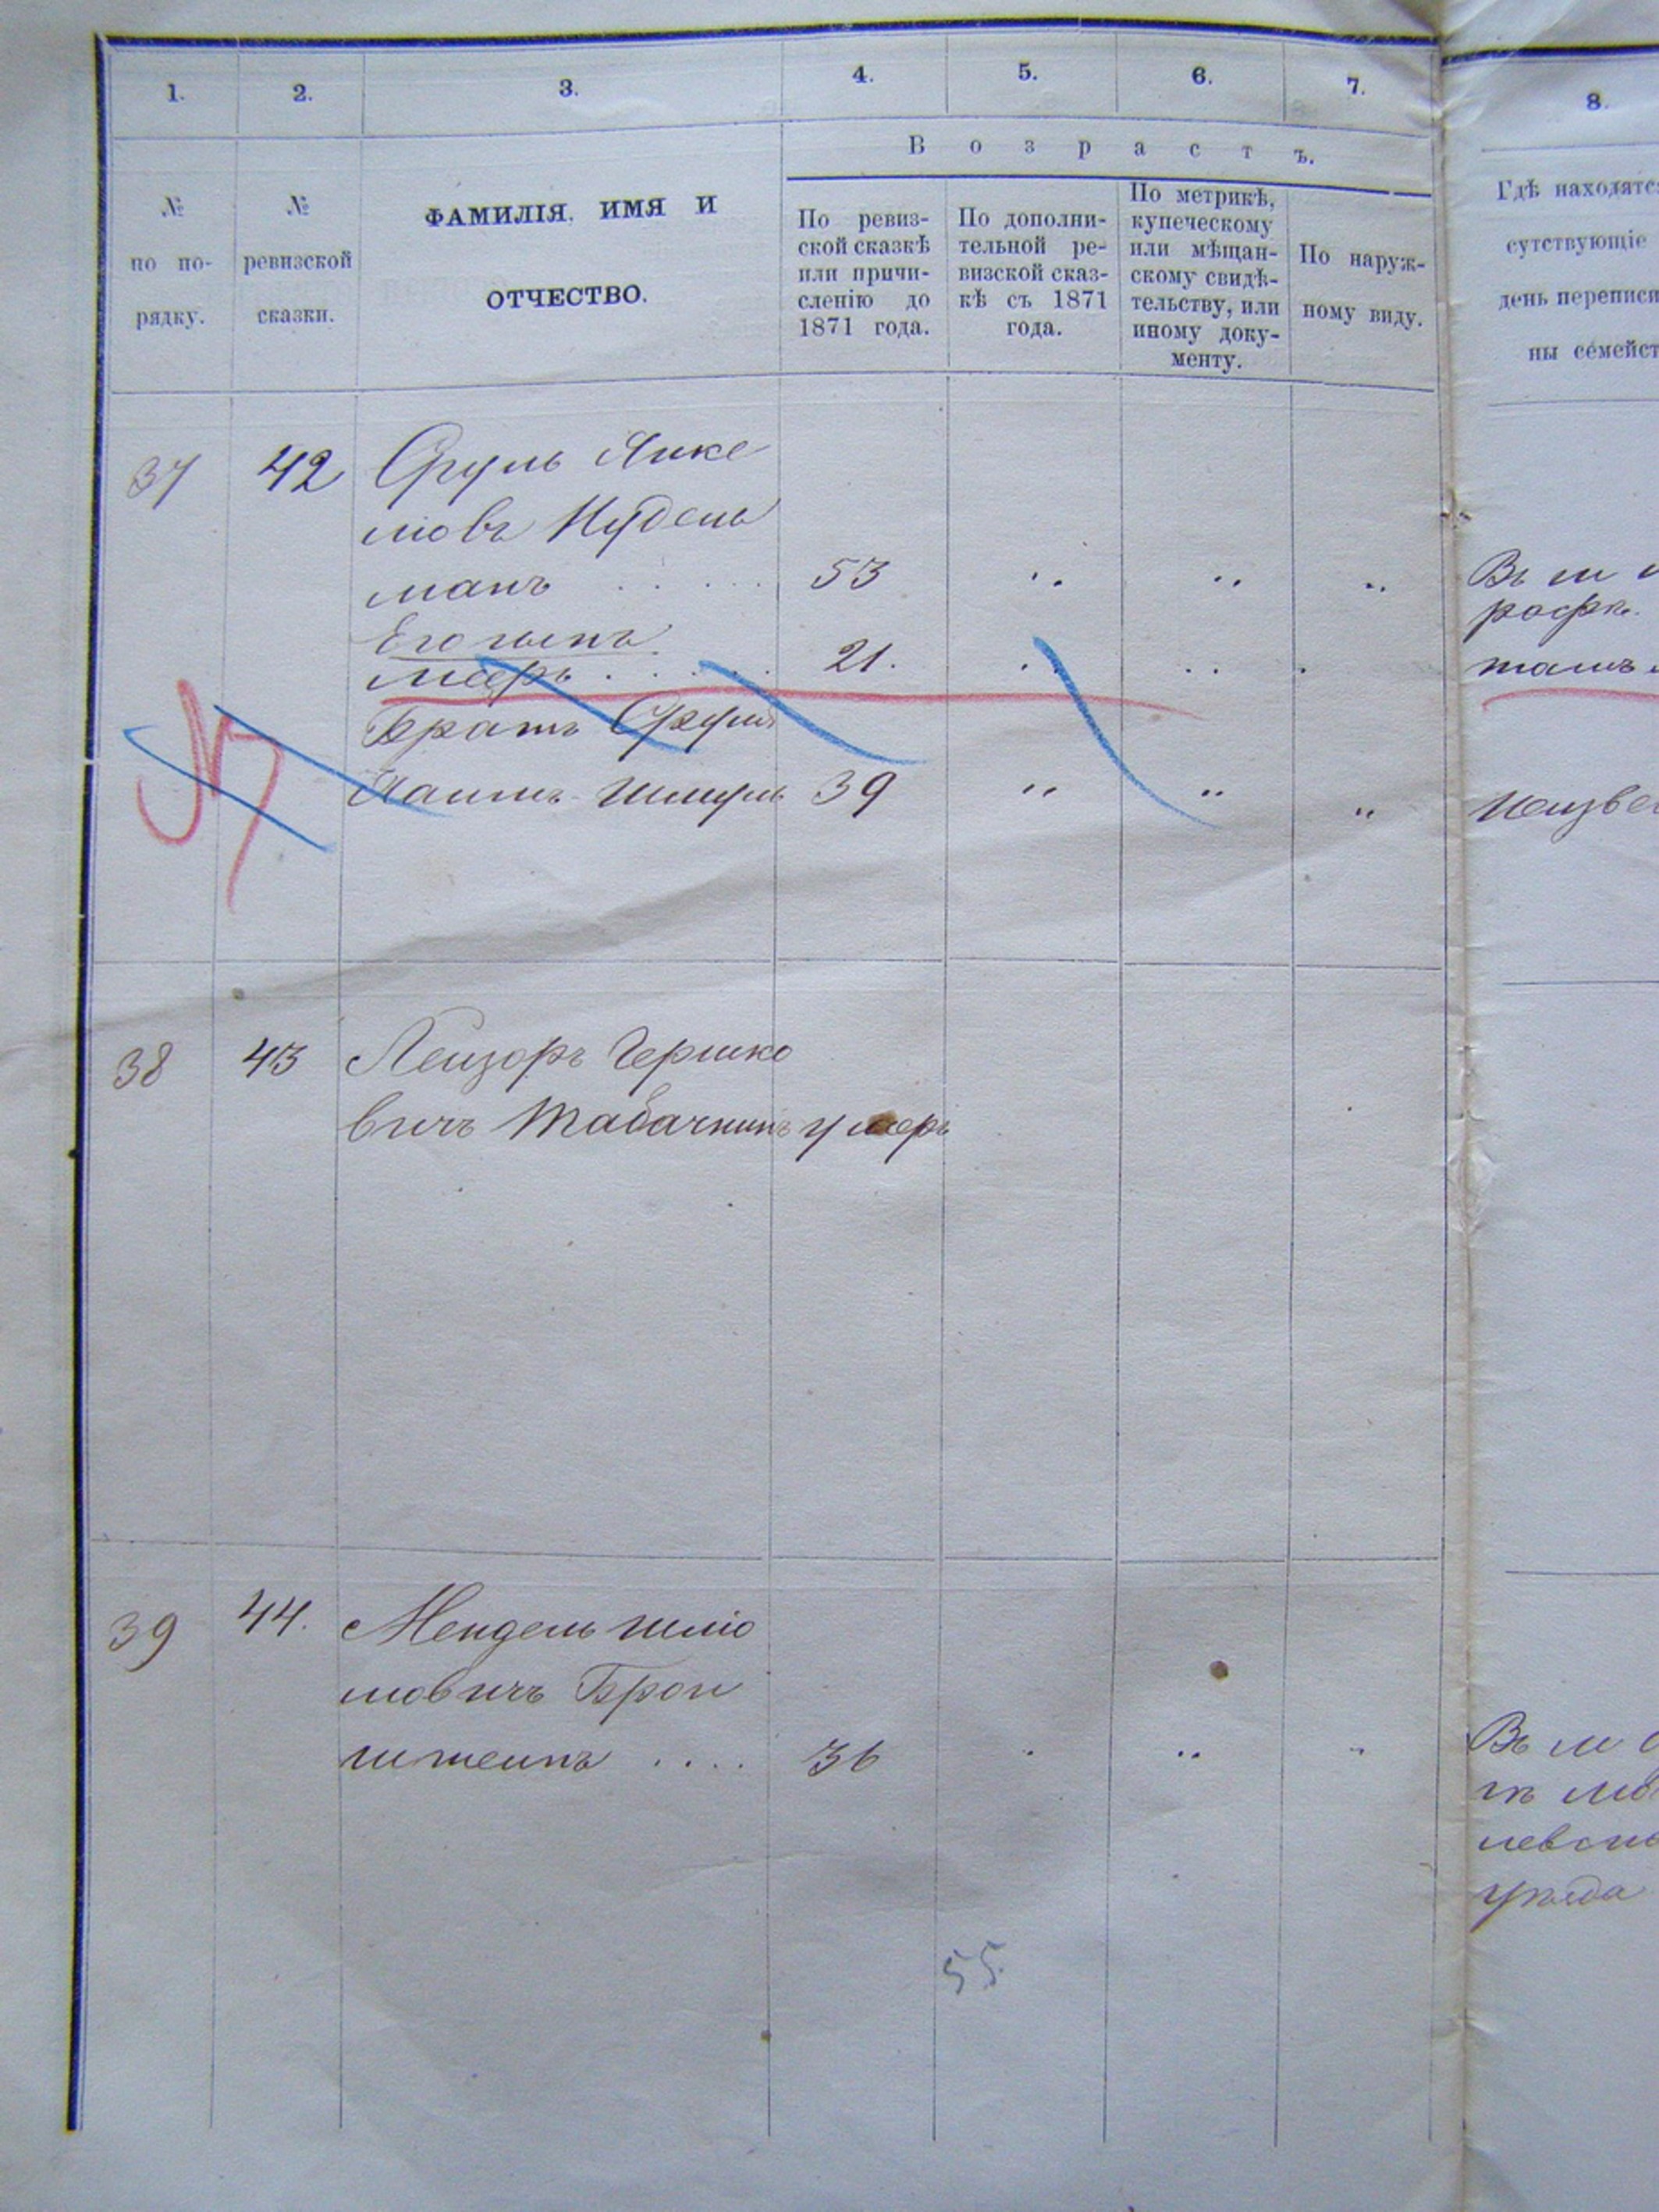 1. 2. 3. 4. 5. 6. 7. 8.
Возрастъ.
№
по по-
рядку.
№
ревизской
сказки.
ФАМИЛІЯ, ИМЯ И
ОТЧЕСТВО.
По ревиз-
ской сказкѣ
или причи-
сленію до
1871 года.
По дополни-
тельной ре-
визской сказ-
кѣ съ 1871
года.
По метрикѣ,
купеческому
или мѣщан-
скому свидѣ-
тельству, или
иному доку-
менту.
По наруж-
ному виду.
Гдѣ находятся
сутствующіе
день переписи
ны семейст
37 42 Сруль Янке
левъ Нудель
манъ ..... 53 Въ м
Его сынъ
Меерь ..... 21. тамъ
Братъ Сруля
Хаимъ-Шмуль 39 Неизвѣ
38 43 Лейзоръ Гершко
вичъ Табачникъ умеръ
39 44. Мендель Шліо
мовичъ Брон
штейнъ .... 36 Въ м
уѣзда
55.